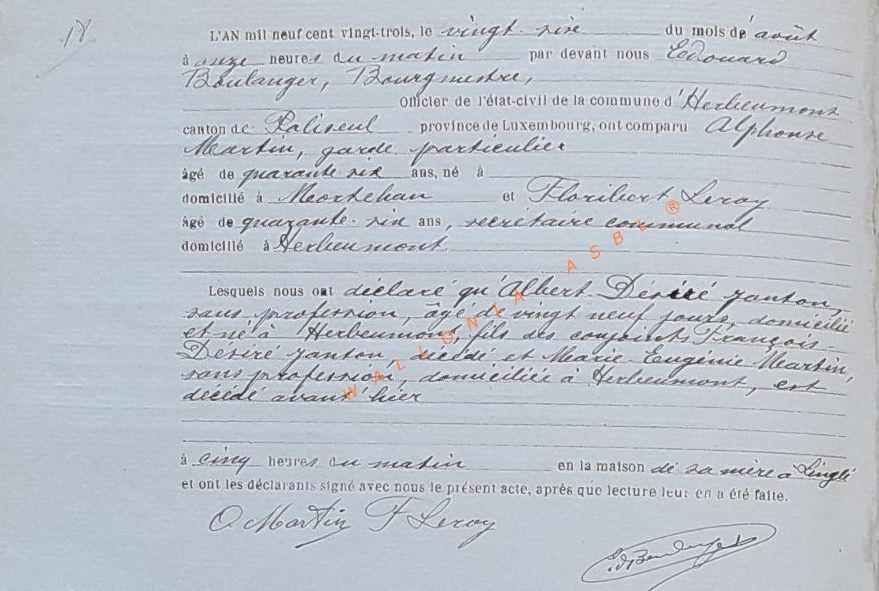 18
L'AN mil neuf cent vingt-trois, le vingt-six du mois de août
à onze heures du matin par devant nous Edouard
Boulanger, Bourgmestre,
officier de l'état-civil de la commune d'Herbeumont
canton de Paliseul province de Luxembourg, ont comparu Alphonse
Martin, garde particulier
âgé de quarante six ans, né à
domicilié à Mortehan et Floribert Leroy
âgé de quarante-six ans, secrétaire communal
domicilié à Herbeumont.
Lesquels nous ont déclaré qu'Albert Désiré Janton,
sans profession, âgé de vingt neuf jours, domicilié
et né à Herbeumont fils des conjoints François-
Désiré Janton, décédé et Marie Eugénie Martin,
sans profession, domiciliée à Herbeumont, est
décédé avant hier
à cinq heures du matin en la maison de sa mère à Linglé
et ont les déclarants signé avec nous le présent acte, après que lecture leur en a été faite.
Martin F Leroy
WALLONIA ASBL ®